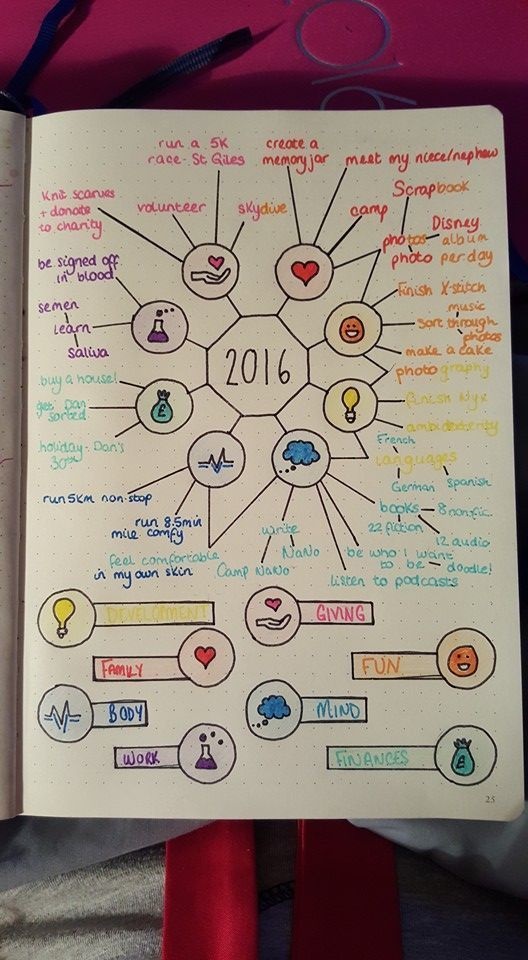 run a 5K
race - St Giles
create a
memory jar
meet my niece/nephew
Knit scarves
+ donate
to charity
volunteer
skydive
camp
Scrapbook
Disney
photos album
photo per day
be signed off
in blood
semen
learn
Saliva
finish X-stitch
music
sort through
photos
make a cake
photography
2016
buy a house!
get Dan
sorted
holiday - Dan's
30th
finish Nyx
ambidexterity
French
languages
German
Spanish
run 5km non-stop
run 8.5min
mile comfy
feel comfortable
in my own skin
write
NaNo
Camp NaNo
books
8 nonfic.
22 fiction
12 audio
be who I want
to be
doodle!
listen to podcasts
DEVELOPMENT
GIVING
FAMILY
FUN
BODY
MIND
WORK
FINANCES
25